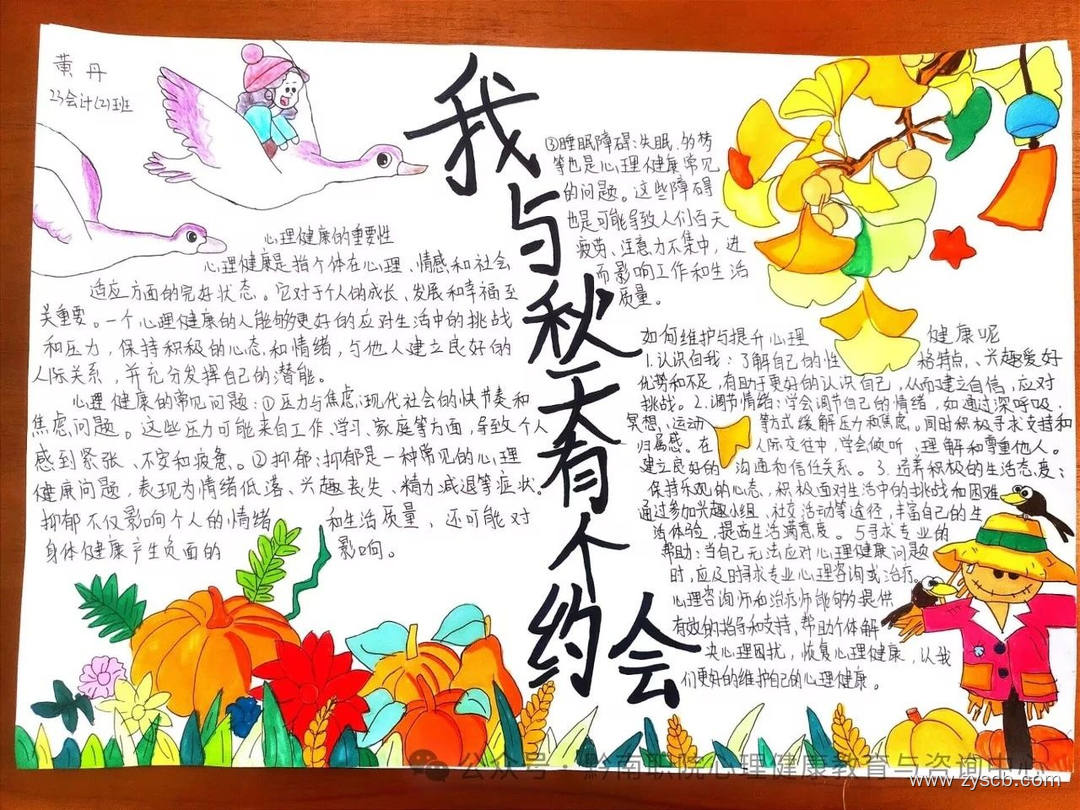 黄丹
23会计(2)班
我与秋天有个约会
心理健康的重要性
心理健康是指个体在心理、情感和社会
适应方面的完好状态。它对于个人的成长、发展和幸福至
关重要。一个心理健康的人能够更好的应对生活中的挑战
和压力，保持积极的心态和情绪，与他人建立良好的
人际关系，并充分发挥自己的潜能。
心理健康的常见问题：①压力与焦虑：现代社会的快节奏和
焦虑问题。这些压力可能来自工作、学习、家庭等方面，导致个人
感到紧张、不安和疲惫。②抑郁：抑郁是一种常见的心理
健康问题，表现为情绪低落、兴趣丧失、精力减退等症状。
抑郁不仅影响个人的情绪和生活质量，还可能对
身体健康产生负面的影响。
③睡眠障碍：失眠、多梦
等也是心理健康常见
的问题。这些障碍
也是可能导致人们白天
疲劳、注意力不集中，进
而影响工作和生活
质量。
如何维护与提升心理健康呢
1.认识自我：了解自己的性格特点、兴趣爱好
优势和不足，有助于更好的认识自己，从而建立自信，应对
挑战。2.调节情绪：学会调节自己的情绪，如通过深呼吸、
冥想、运动等方式缓解压力和焦虑。同时积极寻求支持和
归属感。在人际交往中，学会倾听、理解和尊重他人。
建立良好的沟通和信任关系。3.培养积极的生活态度：
保持乐观的心态，积极面对生活中的挑战和困难
通过参加兴趣小组、社交活动等途径，丰富自己的生
活体验，提高生活满意度。5寻求专业的
帮助：当自己无法应对心理健康问题
时，应及时寻求专业心理咨询或治疗。
心理咨询师和治疗师能够提供
有效的指导和支持，帮助个体解
决心理困扰，恢复心理健康，从我
们更好的维护自己的心理健康。
公众号·黔南职院心理健康教育与咨询中心
www.zyscb.com